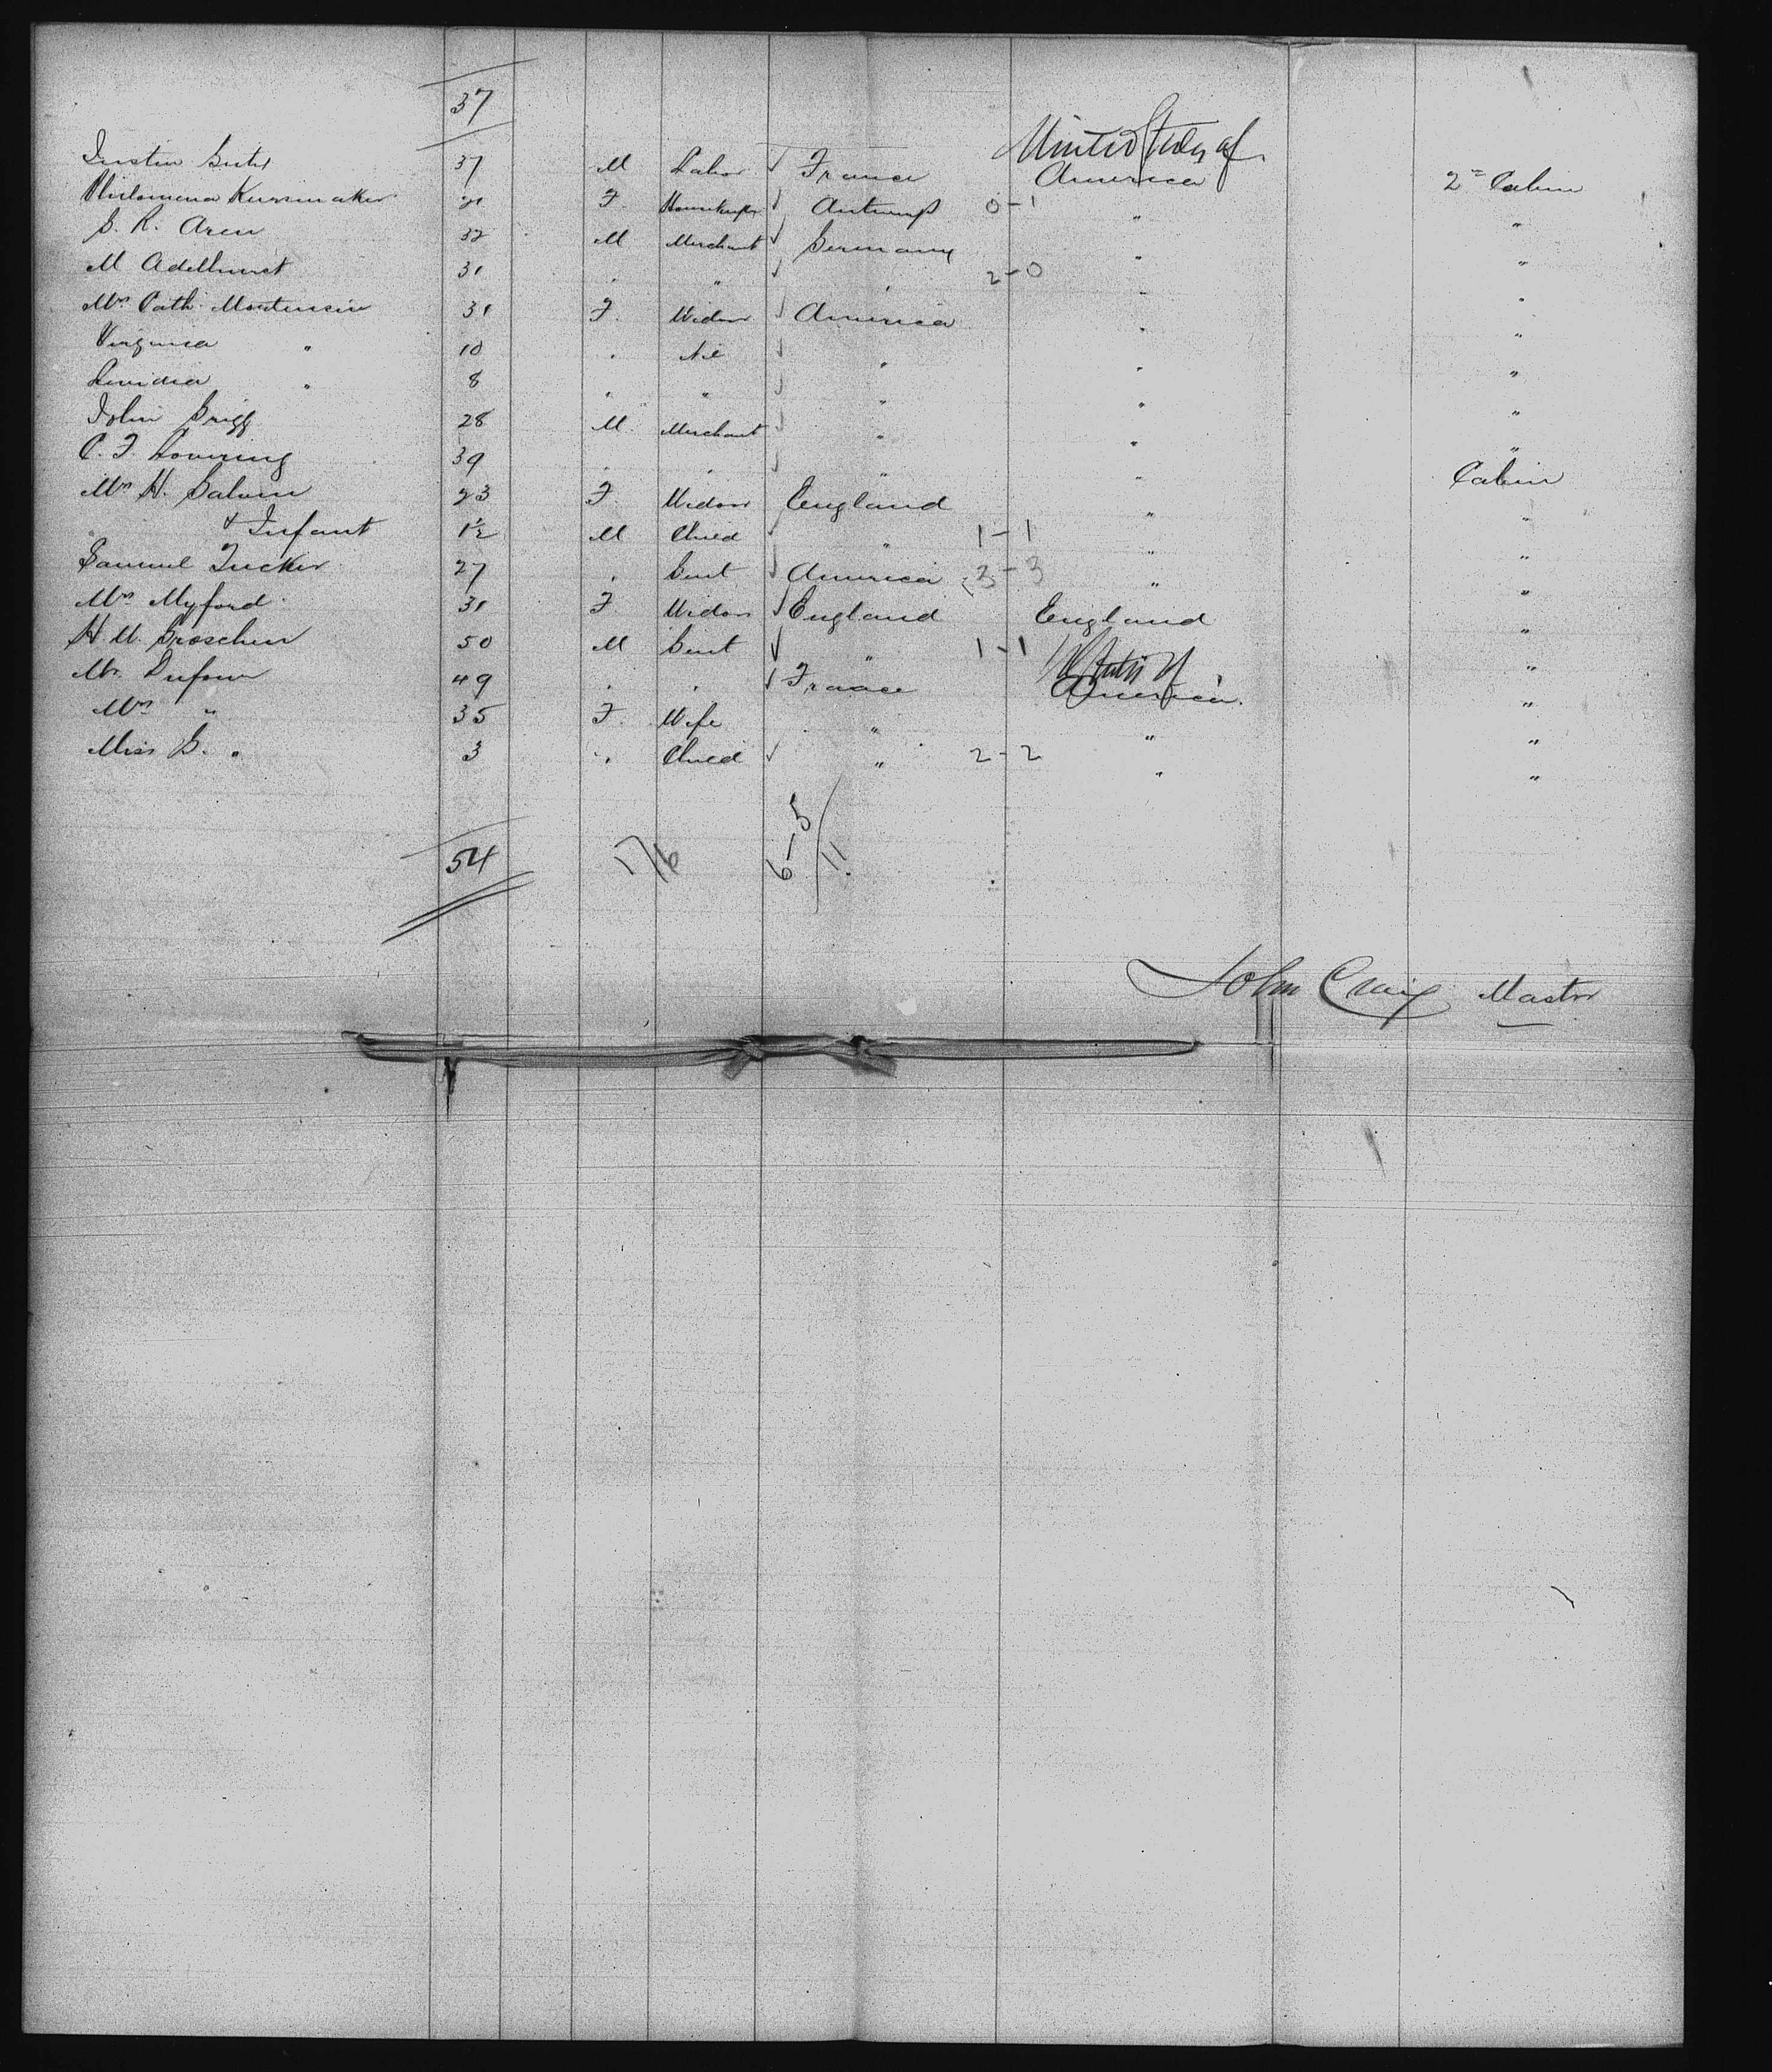 37
United States of
Justin 37 M Labor France America 2nd Cabin
Philomena 21 F. Housekeeper Antwerp 0-1 " "
G. R. Aren 32 M Merchant Germany " "
M Adelhurst 31 . " " 2-0 " "
Mrs Cath. Mortensen 31 F. Widow America " "
Virginia " 10 . Nil " " "
" 8 " " " " "
John Grigg 28 M. Merchant " " "
C. F. Lovering 39 . . " " Cabin
Mrs H. Galvin 23 F. Widow England " "
& Infant 1½ M Child " 1-1 " "
Samuel Tucker 27 . Gent America 3-3 " "
Mrs Myford 31 F Widow England England "
H. M. Groschen 50 M Gent " 1-1 U States of "
Mr. Dufour 49 . . France America. "
Mrs " 35 F. Wife " " "
Miss G. " 3 " Child " 2-2 " "
54 17/6 6-5/11
John Craig Master